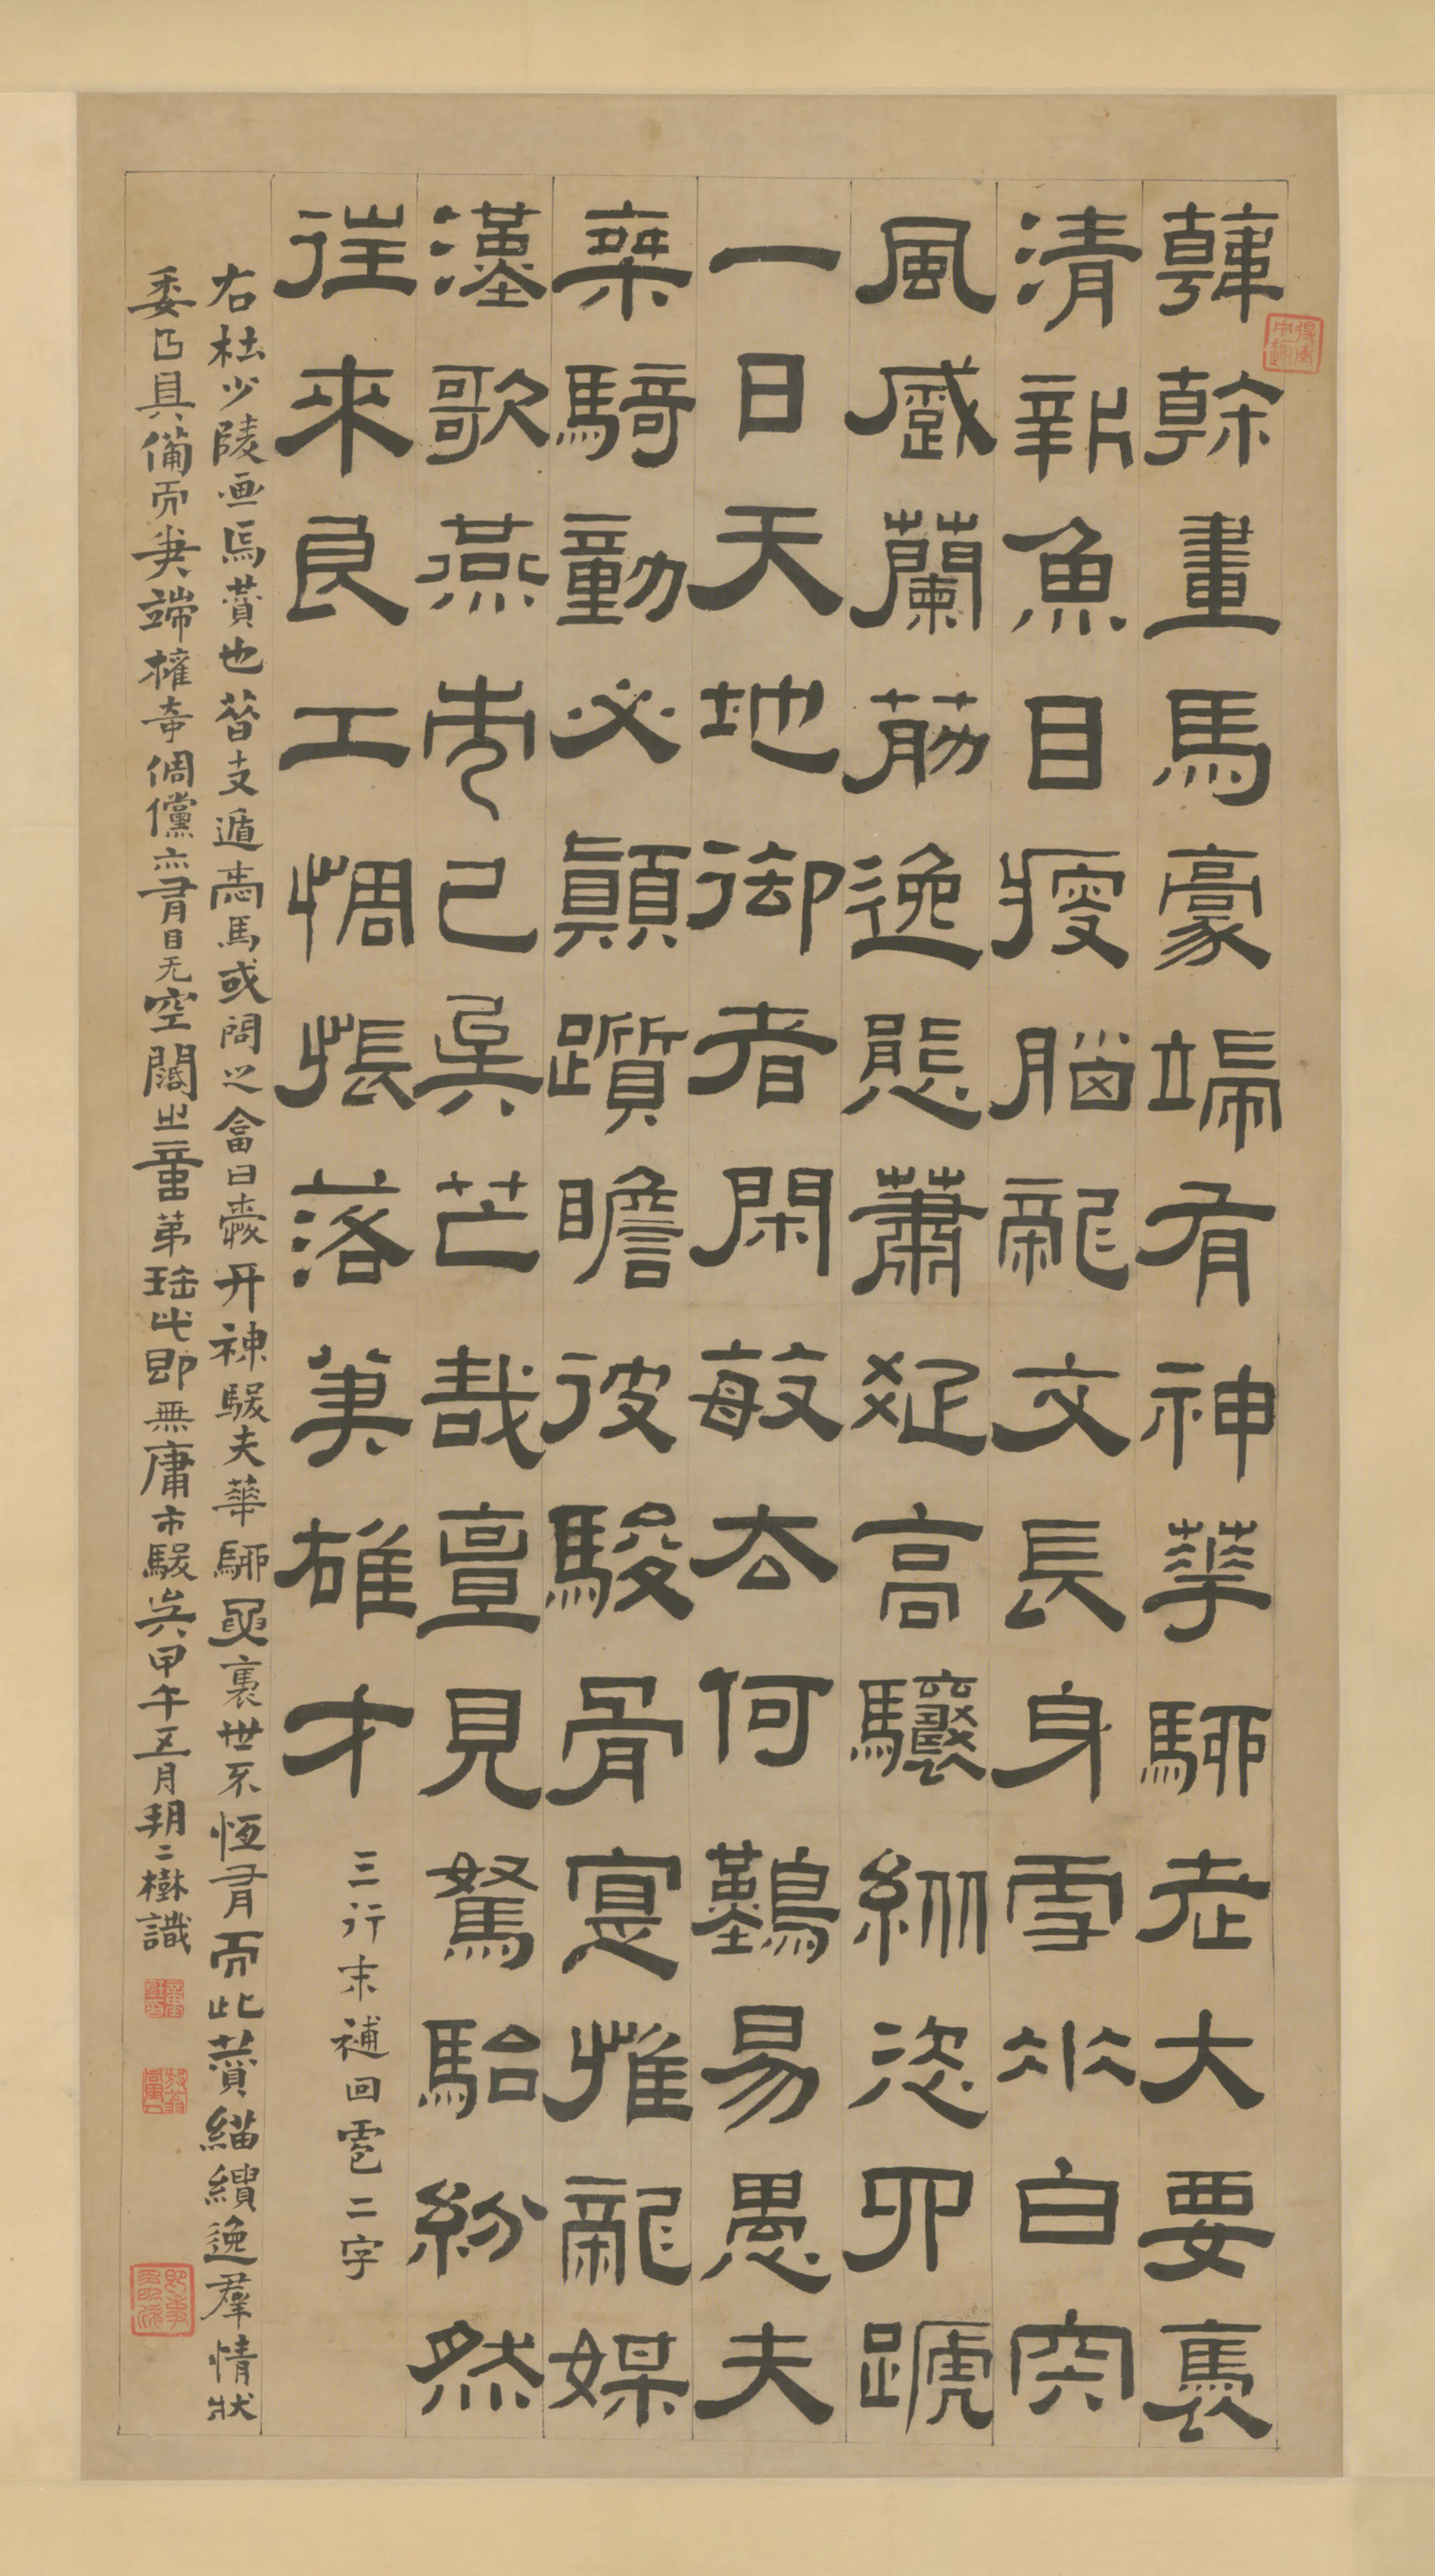 韓幹畫馬豪端有神華騮老大要褭
清新魚目瘦腦龍文長身雪垂白肉
風蹙蘭筋逸態蕭疏高驤縱恣四蹏
一日天地御者閑敏去何難易愚夫
乘騎動必顛躓瞻彼駿骨寔惟龍媒
漢歌燕市已矣芒哉亶見駑駘紛然
往來良工惆悵落筆雄才
三行末補回雹二字
右杜少陵画馬贊也昔支遁憙馬或問之畣曰愛其神駿夫華騮要褭世不恆有而此贊緢繢逸羣情狀
委曲具備而筆端權奇倜儻亦有目无空闊之第珤此即無庸市駿矣甲午五月朔二樹識